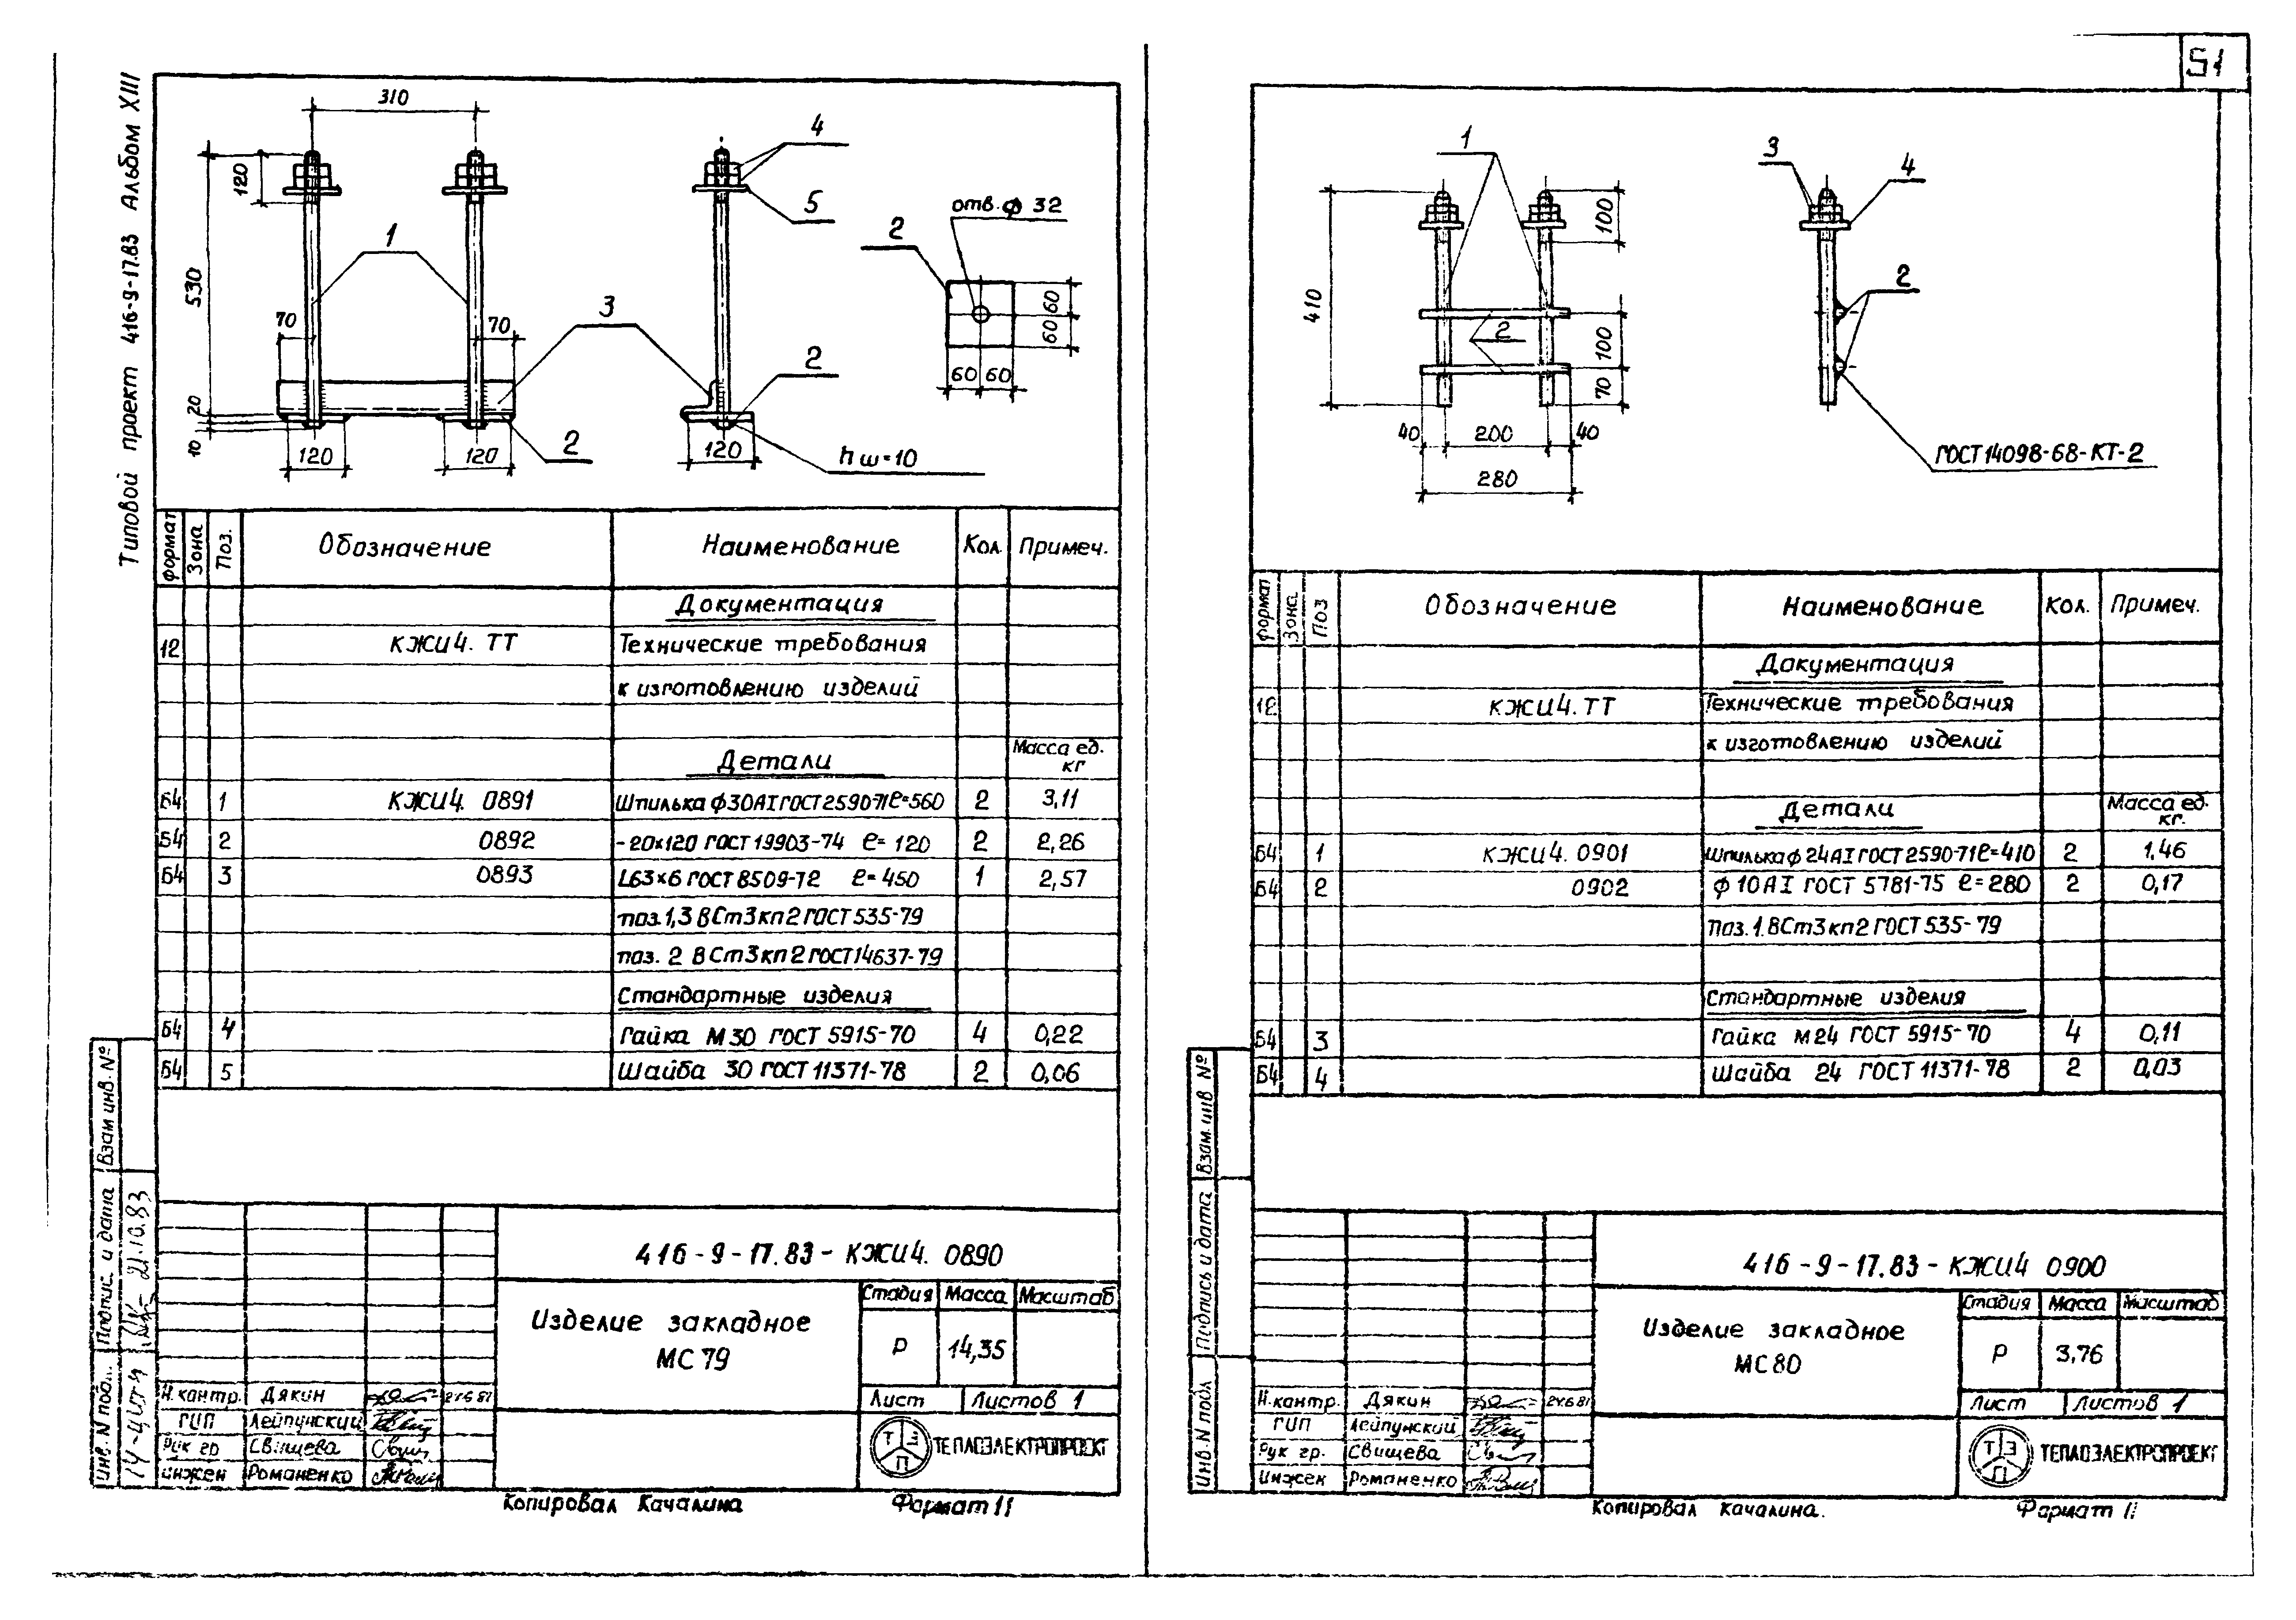 51
Типовой проект 416-9-17.83 Альбом XIII
310
120
530
70
70
20
10
120
120
120
1
3
2
4
5
2
hш=10
2
отв. ф 32
60
60
60 60
формат Зона Поз. Обозначение Наименование Кол. Примеч.
Документация
12 КЖИ4. ТТ Технические требования
к изготовлению изделий
Детали Масса ед. кг
Б4 1 КЖИ4. 0891 Шпилька ф30АI ГОСТ 2590-71 ℓ=560 2 3,11
Б4 2 0892 -20×120 ГОСТ 19903-74 ℓ= 120 2 2,26
Б4 3 0893 L63×6 ГОСТ 8509-72 ℓ= 450 1 2,57
поз. 1,3 ВСт3кп2 ГОСТ 535-79
поз. 2 ВСт3кп2 ГОСТ 14637-79
Стандартные изделия
Б4 4 Гайка М30 ГОСТ 5915-70 4 0,22
Б4 5 Шайба 30 ГОСТ 11371-78 2 0,06
Взам инв. №
Подпис. и дата 21.10.83
Инв. N под...
416-9-17.83-КЖИ4. 0890
Изделие закладное
МС 79
Стадия Масса Масштаб
Р 14,35
Лист Листов 1
Н.контр. Дякин 24.6.81
ГИП Лейпунский
Рук гр Свищева
Инжен Романенко
ТЭП ТЕПЛОЭЛЕКТРОПРОЕКТ
Копировал Качалина Формат 11
1
3
4
2
2
410
100
100
70
40 200 40
280
ГОСТ 14098-68-КТ-2
формат Зона Поз Обозначение Наименование Кол. Примеч.
Документация
12 КЖИ4. ТТ Технические требования
к изготовлению изделий
Детали Масса ед. кг.
Б4 1 КЖИ4. 0901 Шпилька ф24АI ГОСТ 2590-71 ℓ=410 2 1,46
Б4 2 0902 ф10АI ГОСТ 5781-75 ℓ=280 2 0,17
Поз. 1. ВСт3кп2 ГОСТ 535-79
Стандартные изделия
Б4 3 Гайка М24 ГОСТ 5915-70 4 0,11
Б4 4 Шайба 24 ГОСТ 11371-78 2 0,03
Взам. инв №
Подпись и дата
Инв. N подл
416-9-17.83-КЖИ4 0900
Изделие закладное
МС 80
Стадия Масса Масштаб
Р 3,76
Лист Листов 1
Н.контр. Дякин 24.6.81
ГИП Лейпунский
Рук гр. Свищева
Инжен Романенко
ТЭП ТЕПЛОЭЛЕКТРОПРОЕКТ
Копировал Качалина. Формат 11